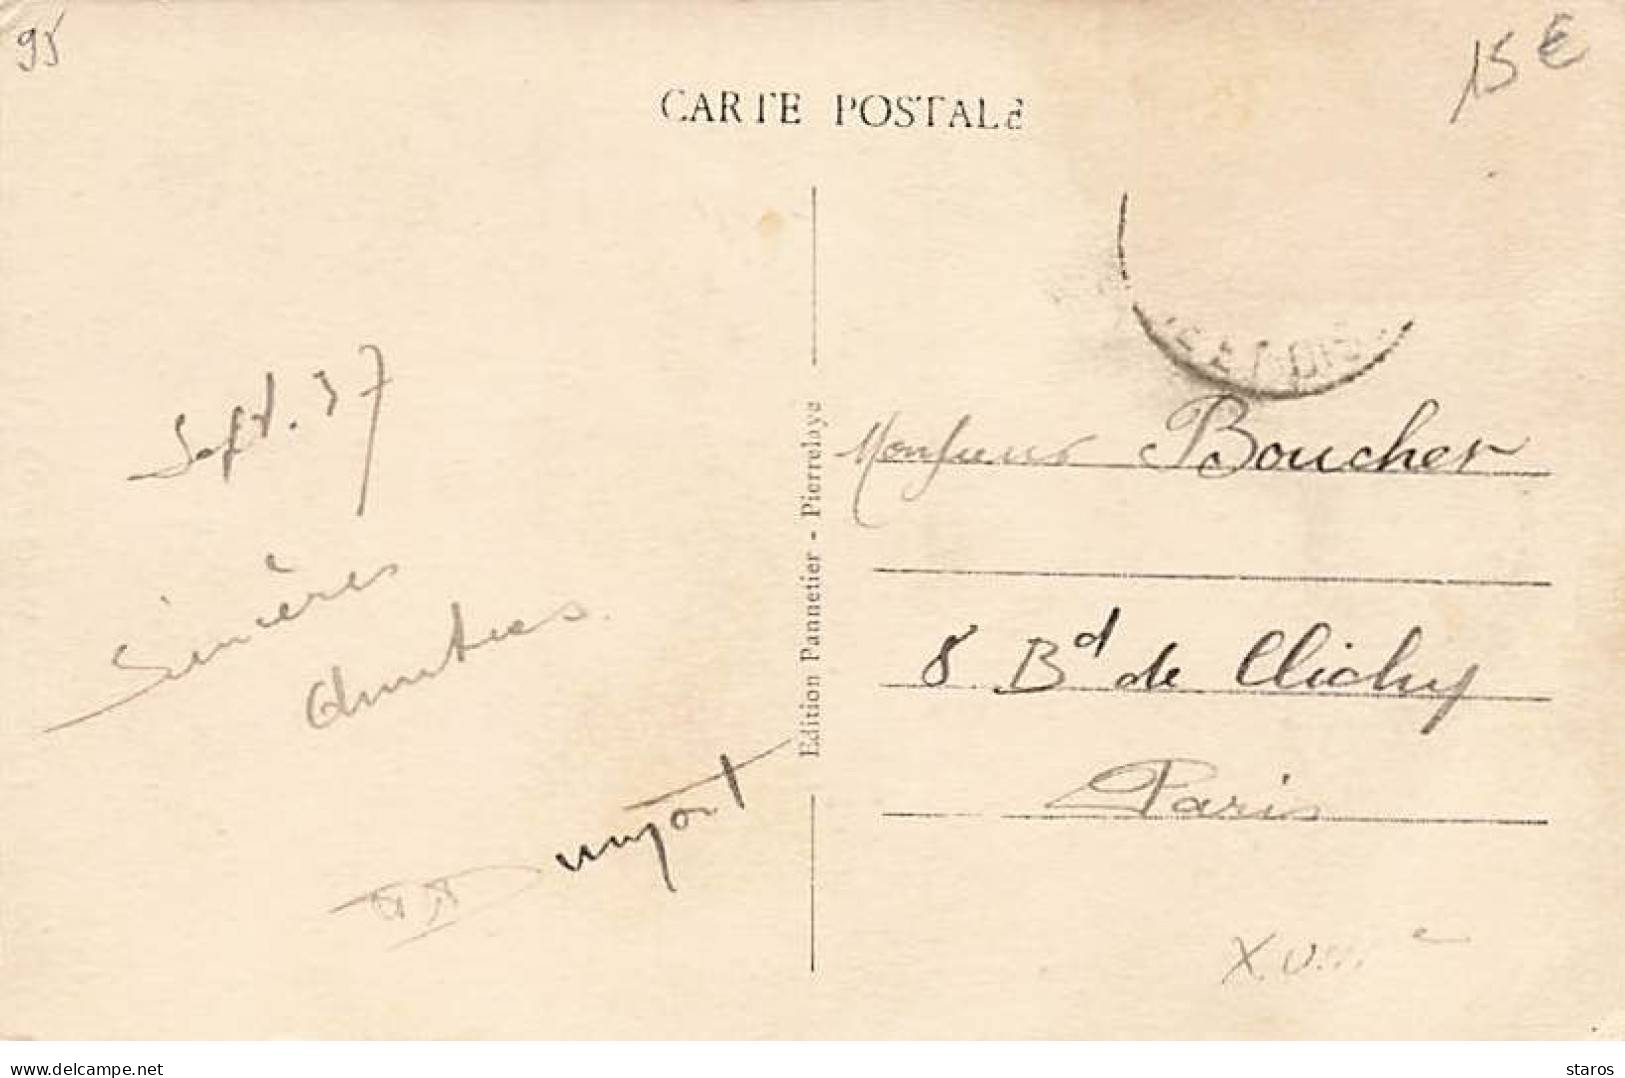 95
15 €
CARTE POSTALE
Sept. 37
Sincères
Amitiés.
Edition Pannetier - Pierrelaye
ET OISE
Monsieur Boucher
8 Bd de Clichy
Paris
XVIIIe
delcampe.net
staros